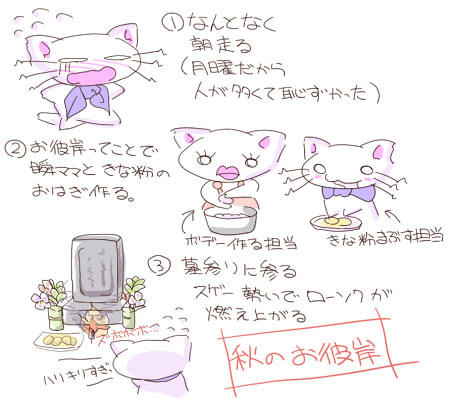 ①なんとなく
朝走る
(月曜だから
人が多くて恥ずかった)
②お彼岸ってことで
瞬ママときな粉の
おはぎ作る。
ボデー作る担当
きな粉まぶす担当
③墓参りに参る
スゲー勢いでローソクが
燃え上がる
ズボボボ…
ハリキリすぎ
秋のお彼岸